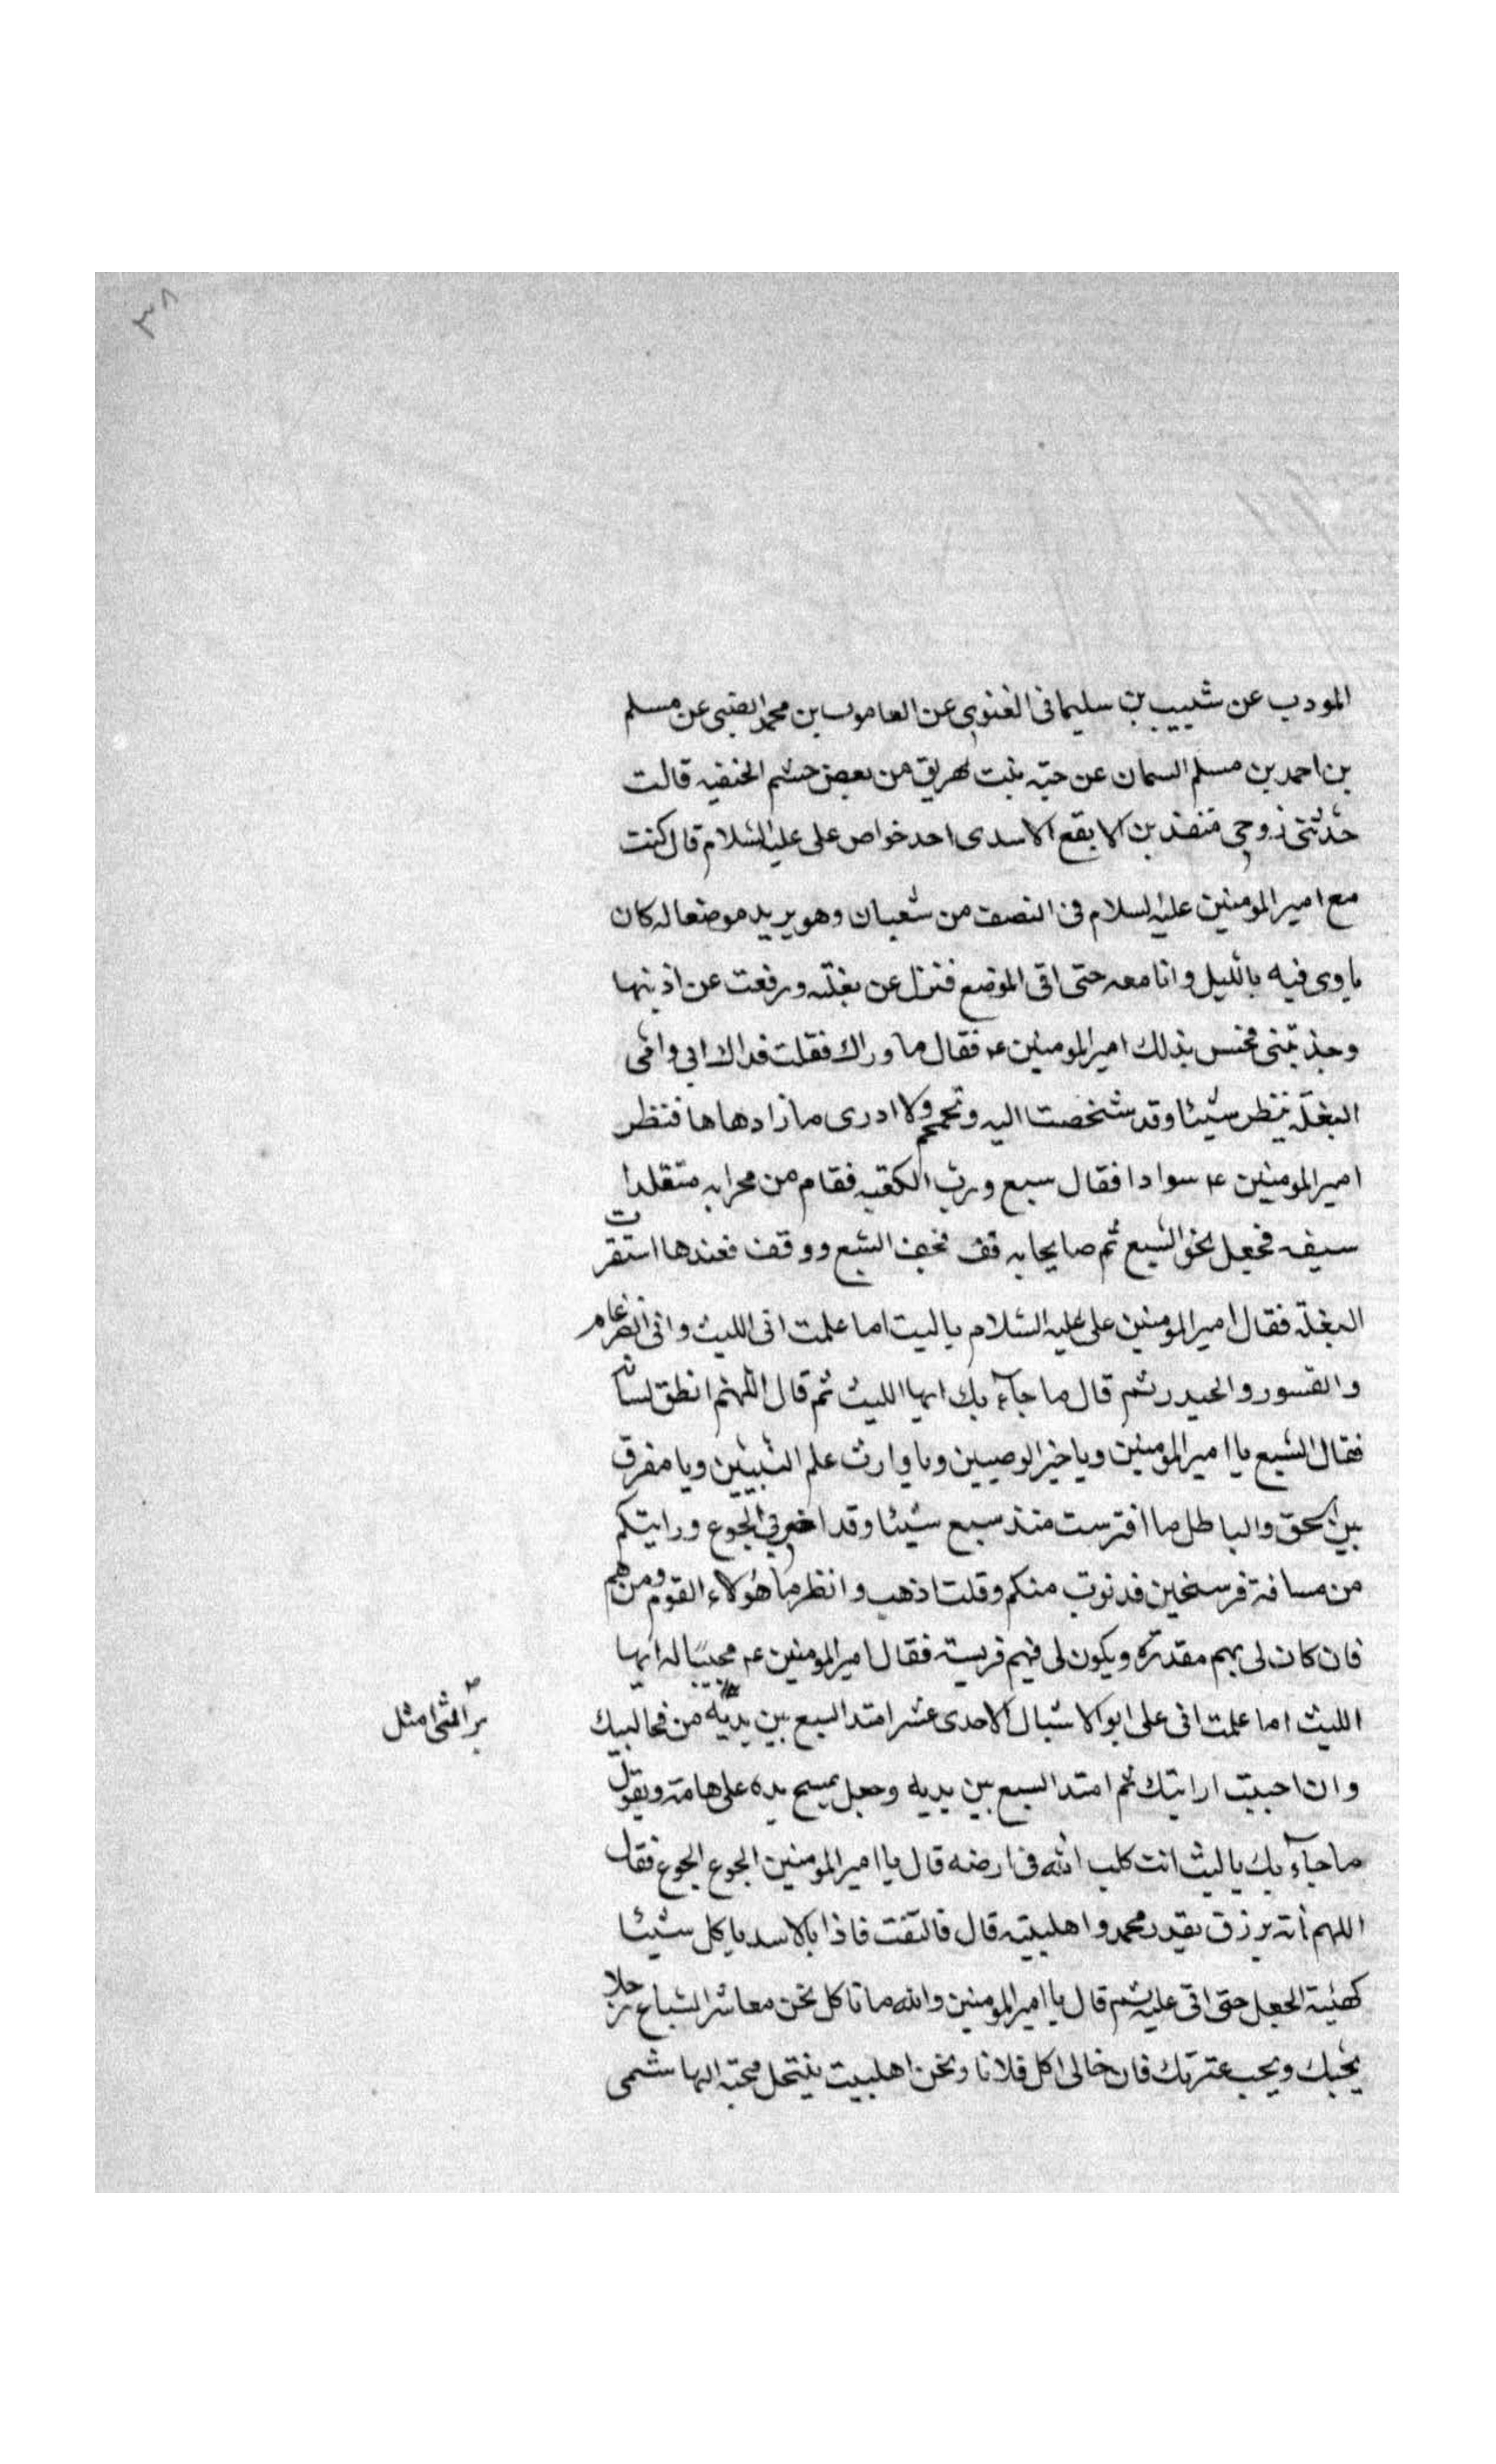 ٣٨
المودب عن شبيب بن سليمانى الغنوى عن العاموس بن محمد الضبى عن مسلم
بن احمد بن مسلم السمان عن حبه بنت نهريق من بعض حشم الخنفيه قالت
حدثتنى زوجى منقذ بن الابقع الاسدى احد خواص على عليه السلام قال كنت
مع امير المومنين عليه السلام فى النصف من شعبان وهو يريد موضعا له كان
ياوى فيه بالليل وانا معه حتى اتى الموضع فنزل عن بغلته ورفعت عن اذنيها
وجذبتنى فحس بذلك امير المومنين ع فقال ما وراك فقلت فداك ابى وامى
البغلة ينظر شيئا وقد شخصت اليه وتحمحم ولا ادرى ماذا دهاها فنظر
امير المومنين ع سوادا فقال سبع ورب الكعبه فقام من محرابه متقلدا
سيفه فجعل يخطو نحو السبع ثم صايحا به قف فخف السبع ووقف فعندها استقرت
البغلة فقال امير المومنين على عليه السلام ياليث اما علمت انى الليث وانى الضرغام
والقسور والحيدر ثم قال ما جآء بك ايها الليث ثم قال اللهم انطق لسانه
فقال السبع يا امير المومنين ويا خير الوصيين ويا وارث علم النبيين ويا مفرق
بين الحق والباطل ما افترست منذ سبع شيئا وقد اضر بى الجوع ورايتكم
من مسافة فرسخين فدنوت منكم وقلت اذهب وانظر ما هؤلاء القوم ومن هم
فان كان لى بهم مقدرة ويكون لى فيهم فريسة فقال امير المومنين ع مجيبًا له ايها
الليث اما علمت انى على ابو الاشبال الاحدى عشر امتد السبع بين يديه من مخالبيك
براثنى امثل
وان احببت ارايتك ثم امتد السبع بين يديه وجعل يمسح يده على هامته ويقول
ما جآء بك ياليث انت كلب الله فى ارضه قال يا امير المومنين الجوع الجوع فقال
اللهم أته برزق بقدر محمد واهلبيته قال فالتفت فاذا بالاسد ياكل شيئا
كهئية الجمل حتى اتى عليه ثم قال يا امير المومنين والله ما ناكل نحن معاشر السباع رجلا
يحبك ويحب عترتك فان خالى اكل فلانا ونحن اهلبيت ينتحل محبة الهاشمى